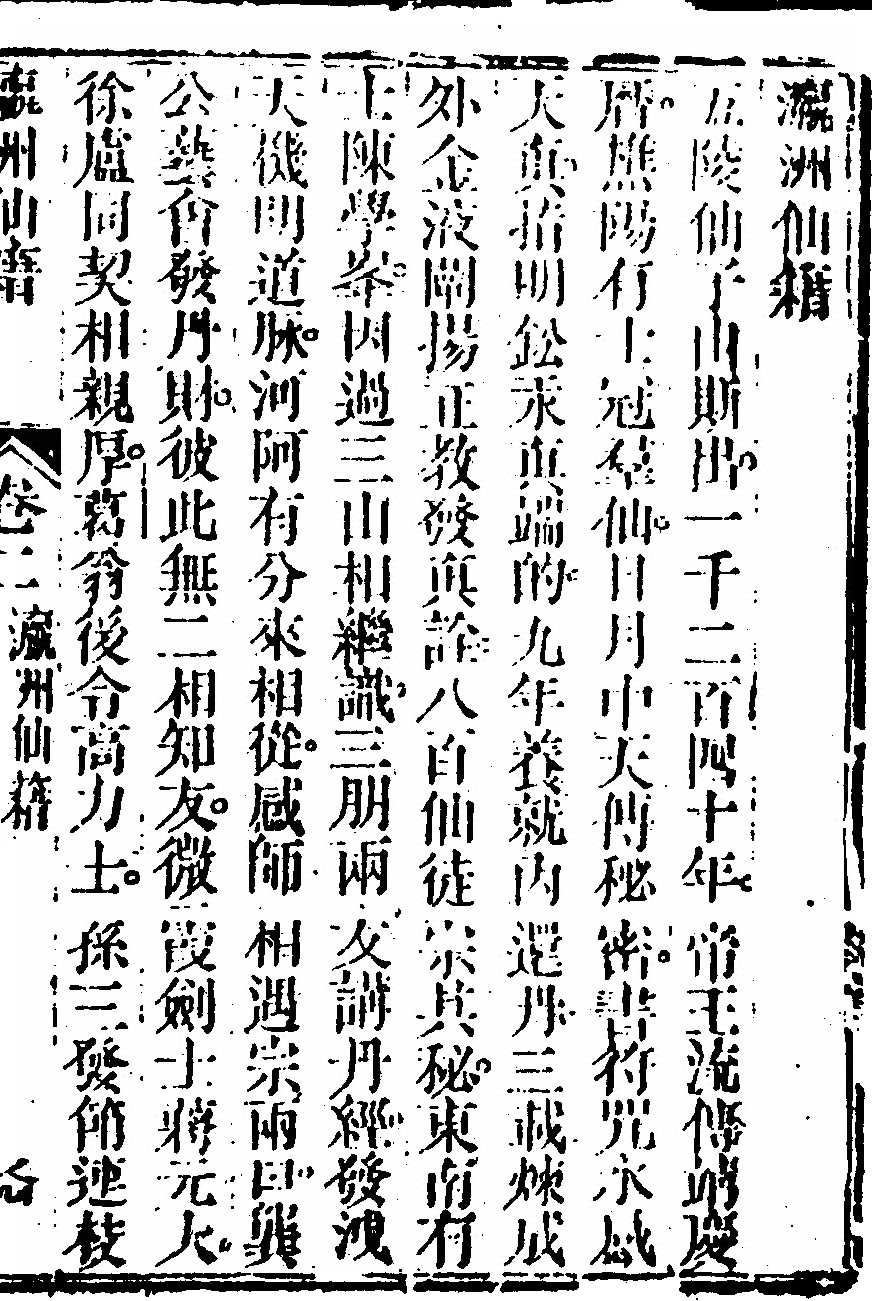 瀛洲仙籍
五陵仙子山斯出一千二百四十年帝王流傳端慶
層樵陽有上冠羣仙日月中天傳秘密書符咒永盛
天真指明鉛汞真端的九年養就內還丹三載煉成
外金液闡揚正敎發真詮八百仙徒宗其秘東南有
士陳學峯因過三山相繼識三朋兩友講丹經發洩
天機明道脉河阿有分來相從感師相遇宗兩口龔
公藝曾發丹財彼此無二相知友微霞劍士蔣元大
徐廬同契相親厚葛翁後令高力士孫三發篩連枝
瀛州仙籍
卷二
瀛州仙籍